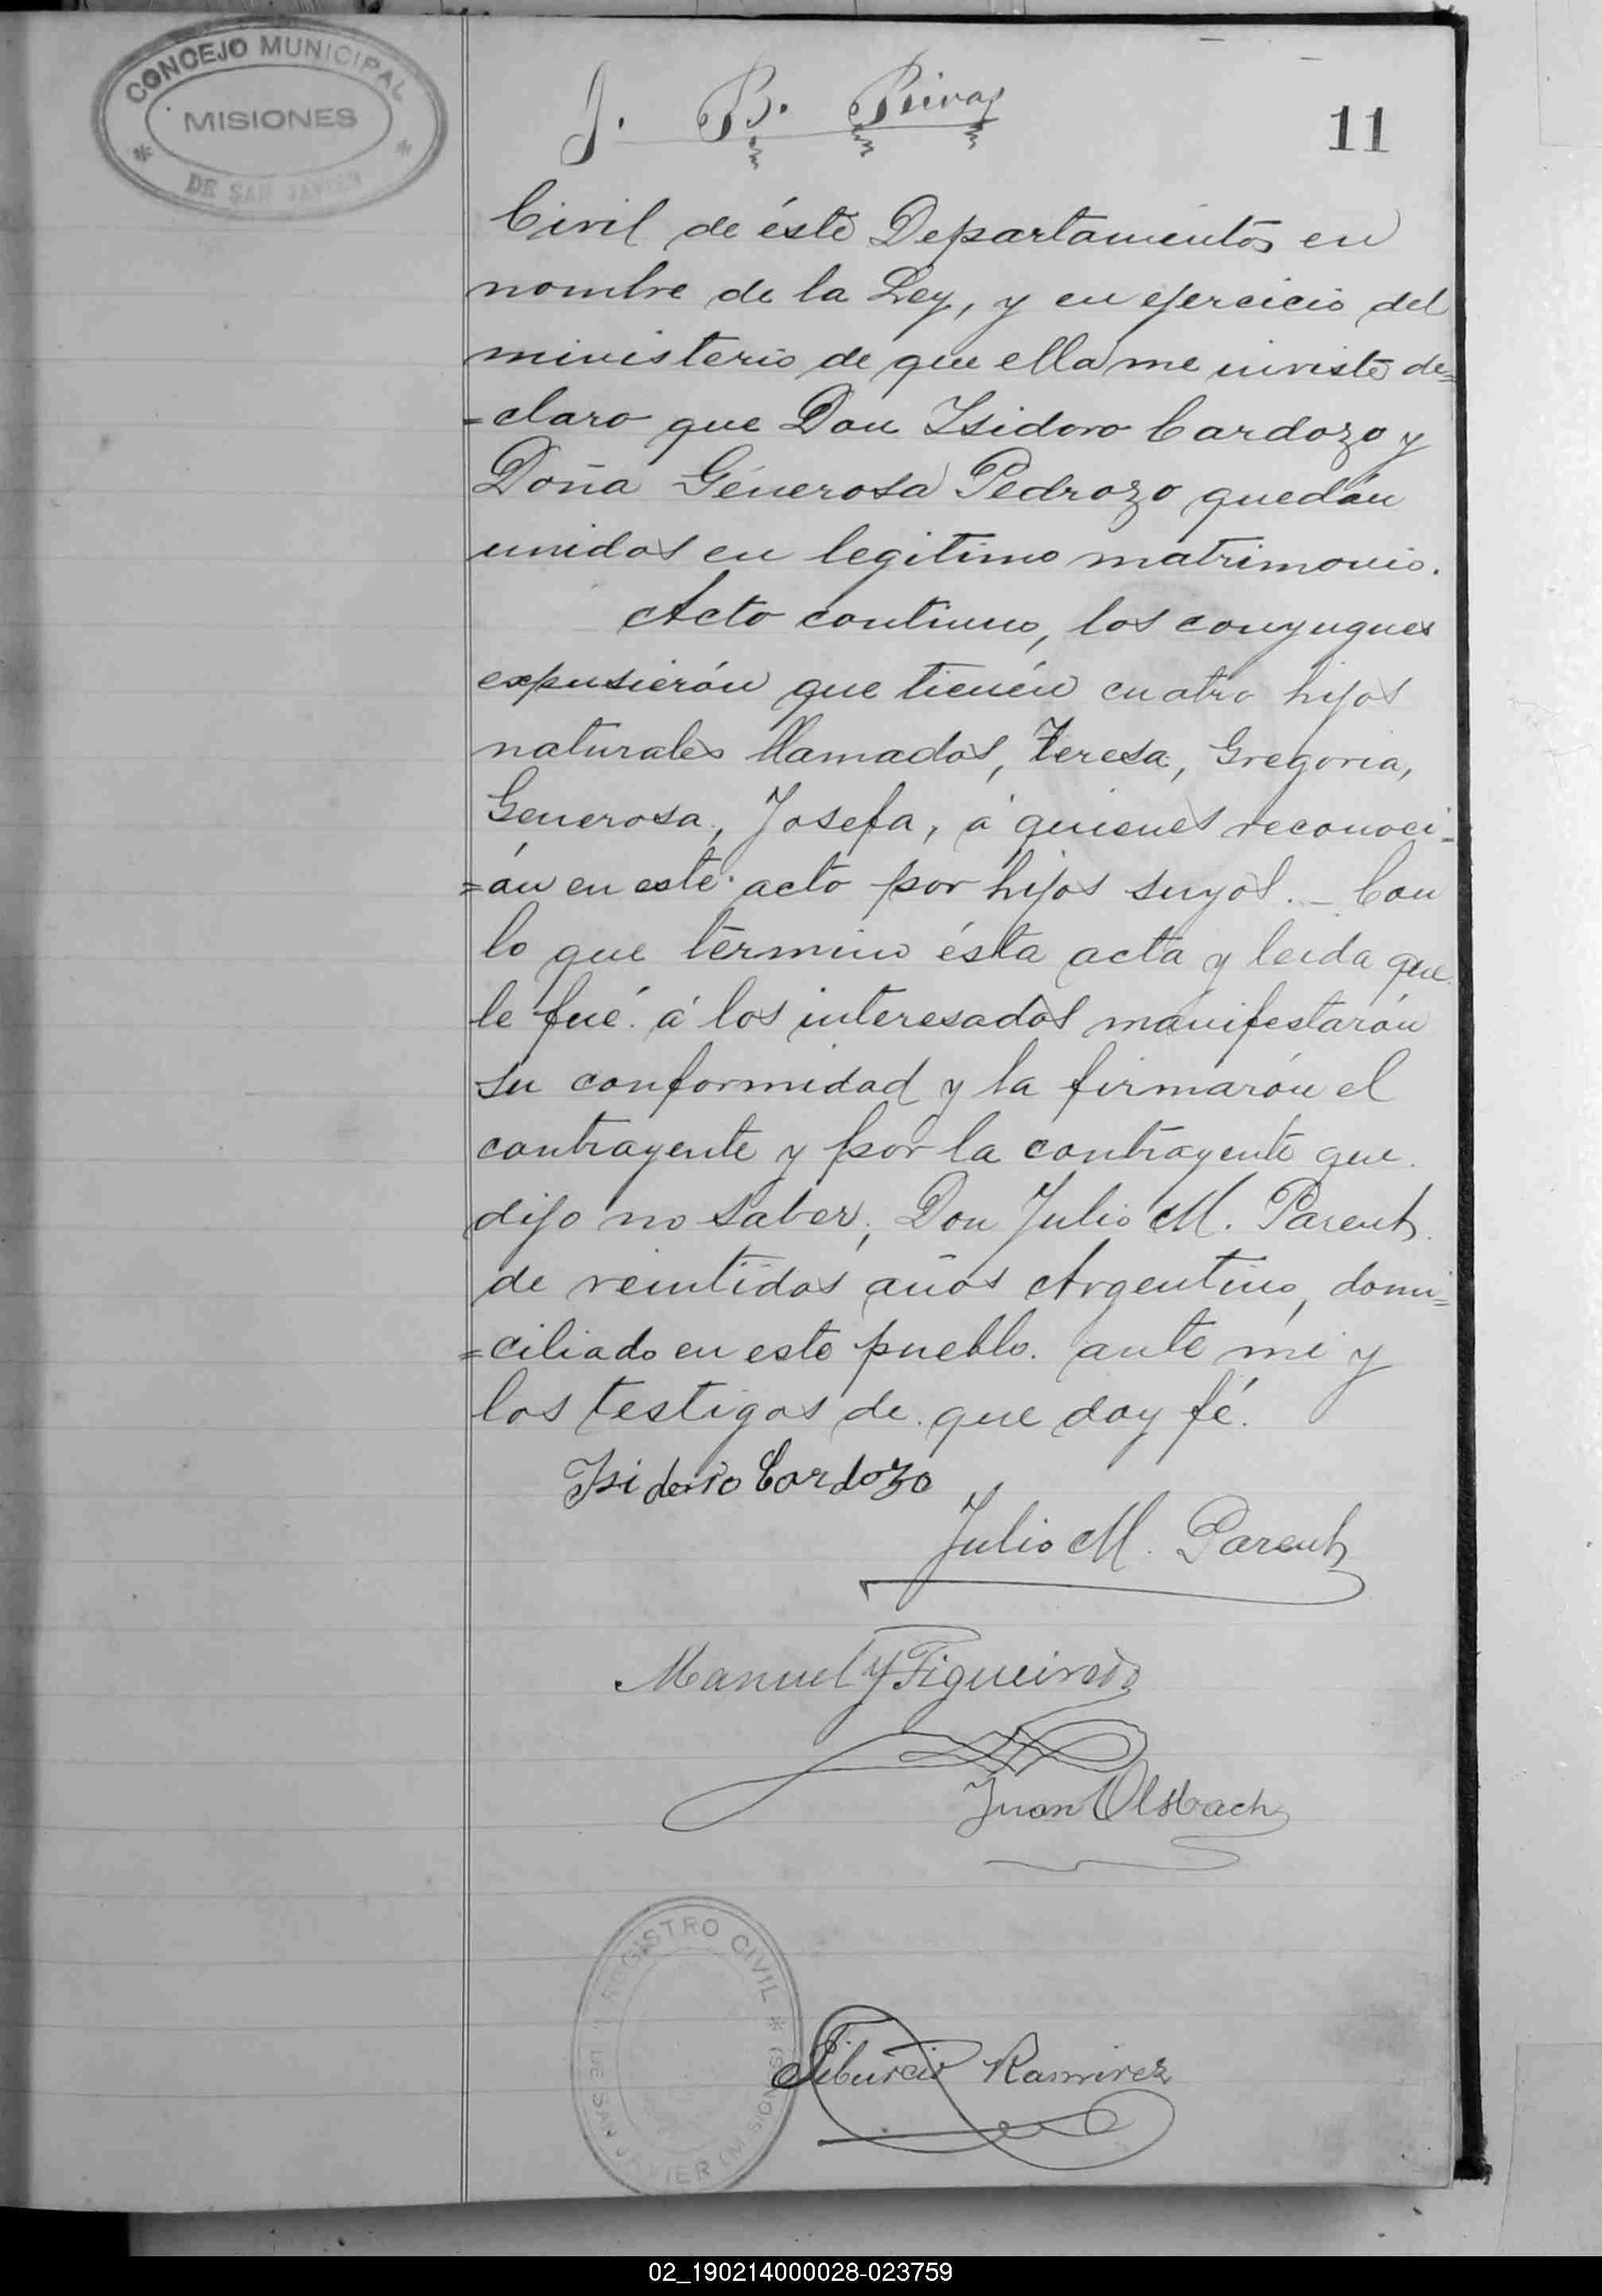 CONCEJO MUNICIPAL
MISIONES
DE SAN JAVIER
J. B. Rivas
11
Civil de éste Departamento, en
nombre de la Ley, y en ejercicio del
ministerio de que ella me inviste de=
=claro que Don Isidoro Cardozo y
Doña Génerosa Pedrozo quedán
unidos en legitimo matrimonio.
Acto continuo, los conyugues
expusierón que tienén cuatro hijos
naturales llamados, Teresa, Gregoria,
Generosa, Josefa, á quienes reconoci=
=án en este acto por hijos suyos. _ Con
lo que término ésta acta y leida que
le fué á los interesados manifestarón
su conformidad y la firmarón el
contrayente y por la contrayente que
dijo no saber, Don Julio M. Parent
de veintidos años Argentino, domi=
=ciliado en este pueblo. ante mi y
los testigos de que doy fé.
Isidoro Cardozo
Julio M. Parent
Manuel Y Figueiredo
Juan Olsbach
REGISTRO CIVIL
DE SAN JAVIER (MISIONES)
Tiburcio Ramirez
02_190214000028-023759